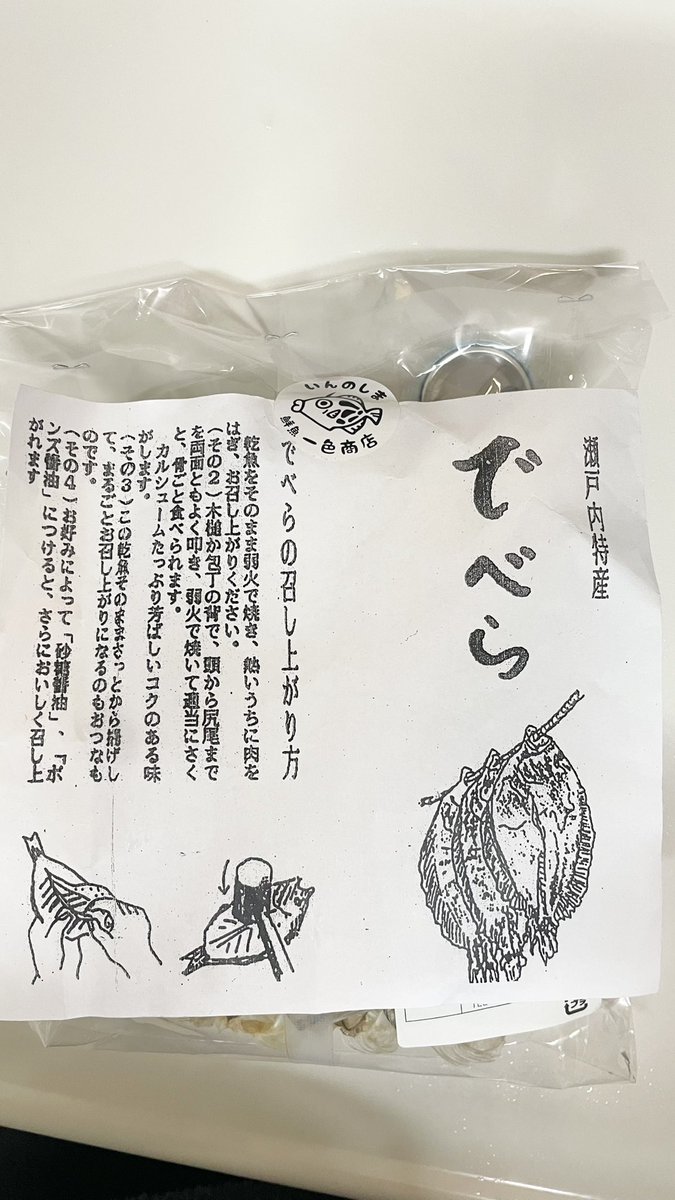 瀬戸内特産
でべら
いんのしま
鮮魚
一色商店
でべらの召し上がり方
乾魚をそのまま弱火で焼き、熱いうちに肉を
はぎ、お召し上がりください。
(その2)木槌か包丁の背で、頭から尻尾まで
を両面ともよく叩き、弱火で焼いて適当にさく
と、骨ごと食べられます。
カルシュームたっぷり芳ばしいコクのある味
がします。
(その3)この乾魚そのままさっとから揚げし
て、まるごとお召し上がりになるのもおつなも
のです。
(その4)お好みによって「砂糖醤油」、「ポ
ンズ醤油」につけると、さらにおいしく召し上
がれます
プラ